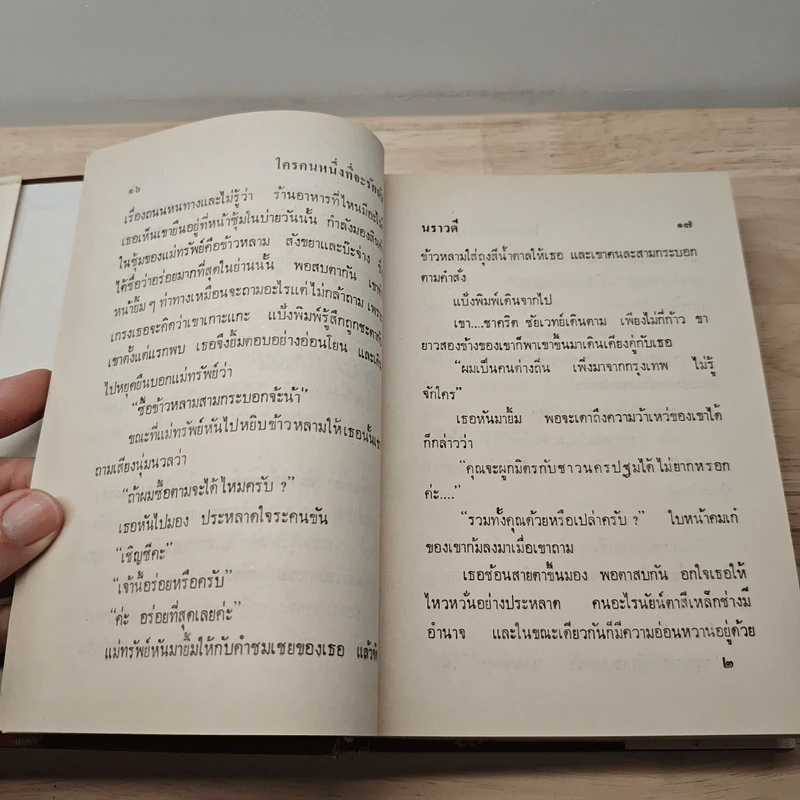 ๑๖
ใครคนหนึ่งที่จะรัก
เรื่องถนนหนทางและไม่รู้ว่า ร้านอาหารที่ไหนมีอะไร
เธอเห็นเขายืนอยู่ที่หน้าซุ้มในบ่ายวันนั้น กำลังมอง
ในซุ้มของแม่ทรัพย์คือข้าวหลาม สังขยาและบ๊ะจ่าง
ได้ชื่อว่าอร่อยมากที่สุดในย่านนั้น พอสบตากัน
หน้ายิ้ม ๆ ท่าทางเหมือนจะถามอะไรแต่ไม่กล้าถาม
เกรงเธอจะคิดว่าเขาเกาะแกะ แป้งพิมพ์รู้สึกถูกชะตา
เขาตั้งแต่แรกพบ เธอจึงยิ้มตอบอย่างอ่อนโยน และ
ไปหยุดยืนบอกแม่ทรัพย์ว่า
“ซื้อข้าวหลามสามกระบอกจ้ะน้า”
ขณะที่แม่ทรัพย์หันไปหยิบข้าวหลามให้เธอนั้น
ถามเสียงนุ่มนวลว่า
“ถ้าผมซื้อตามจะได้ไหมครับ ?”
เธอหันไปมอง ประหลาดใจระคนขัน
“เชิญซีคะ”
“เจ้านี้อร่อยหรือครับ”
“ค่ะ อร่อยที่สุดเลยค่ะ”
แม่ทรัพย์หันมายิ้มให้กับคำชมเชยของเธอ
นราวดี
๑๗
ข้าวหลามใส่ถุงสีน้ำตาลให้เธอ และเขาคนละสามกระบอก
ตามคำสั่ง
แป้งพิมพ์เดินจากไป
เขา....ชาคริต ชัยเวทย์เดินตาม เพียงไม่กี่ก้าว ขา
ยาวสองข้างของเขาก็พาเขาขึ้นมาเดินเคียงคู่กับเธอ
“ผมเป็นคนต่างถิ่น เพิ่งมาจากกรุงเทพ ไม่รู้
จักใคร”
เธอหันมายิ้ม พอจะเดาถึงความว้าเหว่ของเขาได้
ก็กล่าวว่า
“คุณจะผูกมิตรกับชาวนครปฐมได้ไม่ยากหรอก
ค่ะ....”
“รวมทั้งคุณด้วยหรือเปล่าครับ ?” ใบหน้าคมเก๋
ของเขาก้มลงมาเมื่อเขาถาม
เธอช้อนสายตาขึ้นมอง พอตาสบกัน อกใจเธอให้
ไหวหวั่นอย่างประหลาด คนอะไรนัยน์ตาสีเหล็กช่างมี
อำนาจ และในขณะเดียวกันก็มีความอ่อนหวานอยู่ด้วย
๒